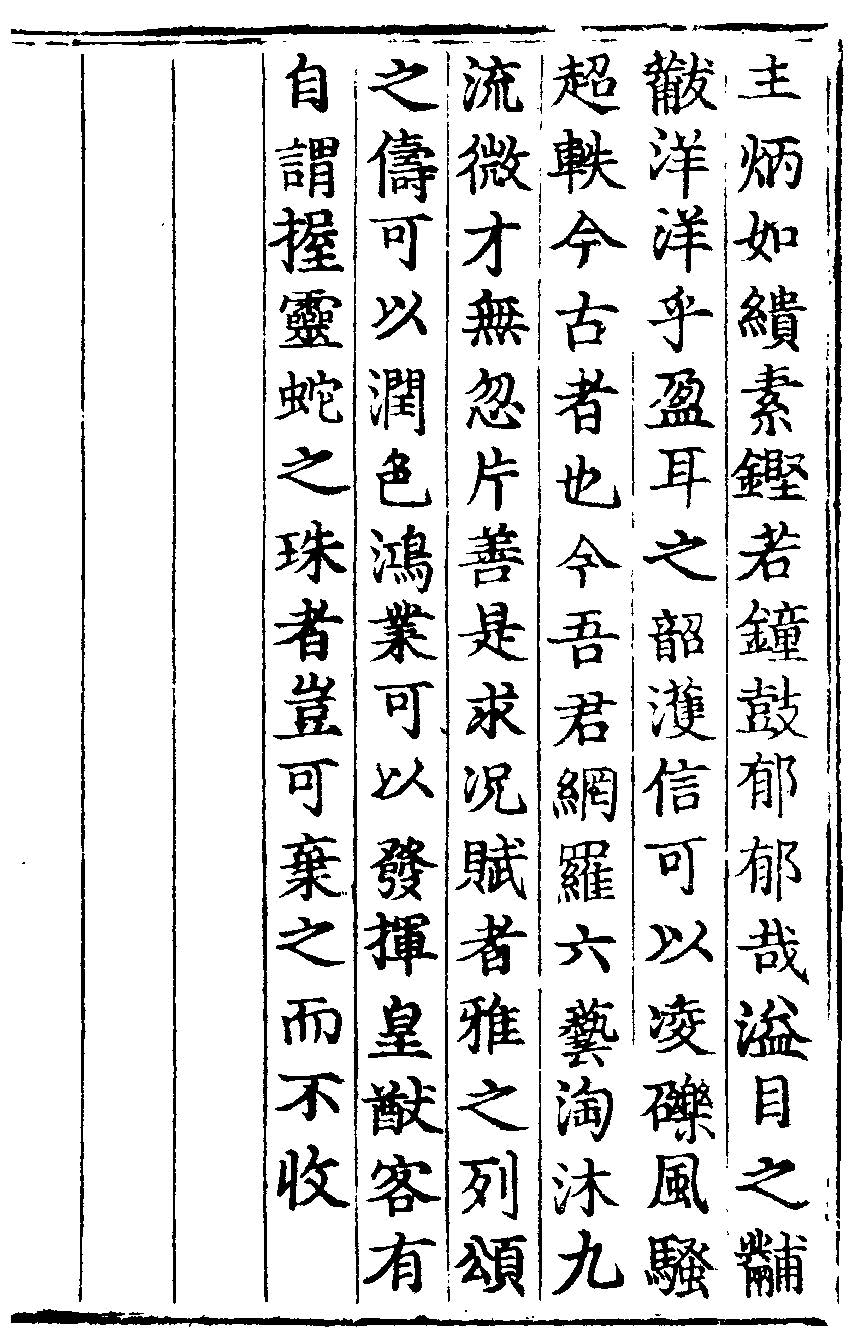 主炳如繢素鏗若鐘鼓郁郁哉溢目之黼
黻洋洋乎盈耳之韶濩信可以凌礫風騷
超軼今古者也今吾君網羅六藝淘汰九
流微才無忽片善是求况賦者雅之列頌
之儔可以潤色鴻業可以發揮皇猷客有
自謂握靈蛇之珠者豈可棄之而不收